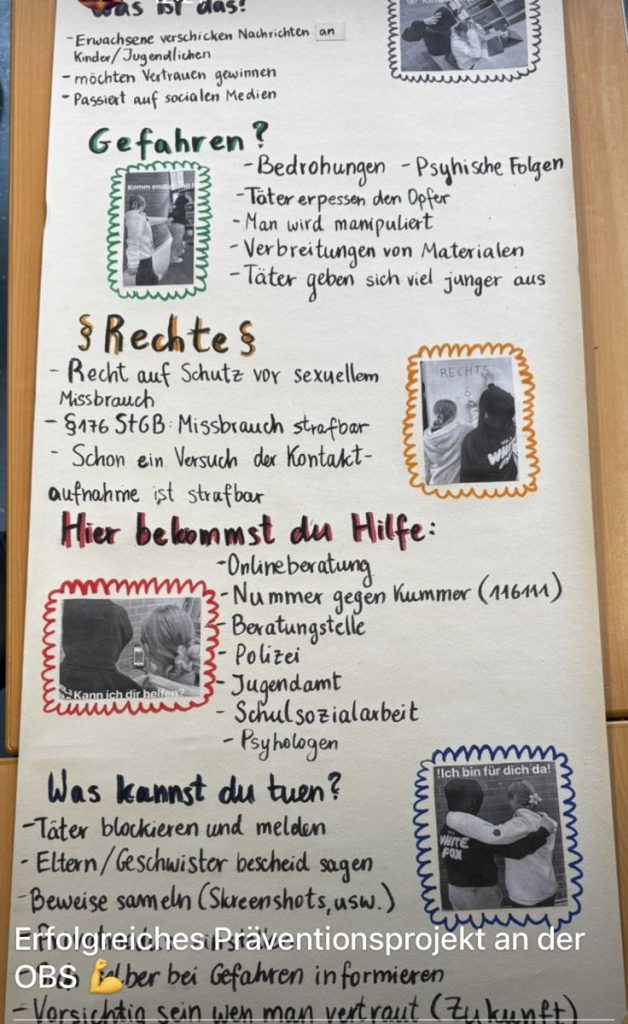 Was ist das?
- Erwachsene verschicken Nachrichten an
Kinder/Jugendlichen
- möchten Vertrauen gewinnen
- Passiert auf socialen Medien
Gefahren?
- Bedrohungen - Psyhische Folgen
Komm
- Täter erpessen den Opfer
- Man wird manipuliert
- Verbreitungen von Materialen
- Täter geben sich viel junger aus
§ Rechte §
- Recht auf Schutz vor sexuellem
Missbrauch
RECHTE
- §176 StGB: Missbrauch strafbar
- Schon ein Versuch der Kontakt-
aufnahme ist strafbar
WHITE
Hier bekommst du Hilfe:
- Onlineberatung
- Nummer gegen Kummer (116111)
- Beratungstelle
- Polizei
- Jugendamt
- Schulsozialarbeit
- Psyhologen
Kann ich dir helfen?
Was kannst du tuen?
!Ich bin für dich da!
WHITE
FOX
- Täter blockieren und melden
- Eltern/Geschwister bescheid sagen
- Beweise sameln (Skreenshots, usw.)
Erfolgreiches Präventionsprojekt an der
OBS 💪
bei Gefahren informieren
- Vorsichtig sein wen man vertraut (Zukunft)